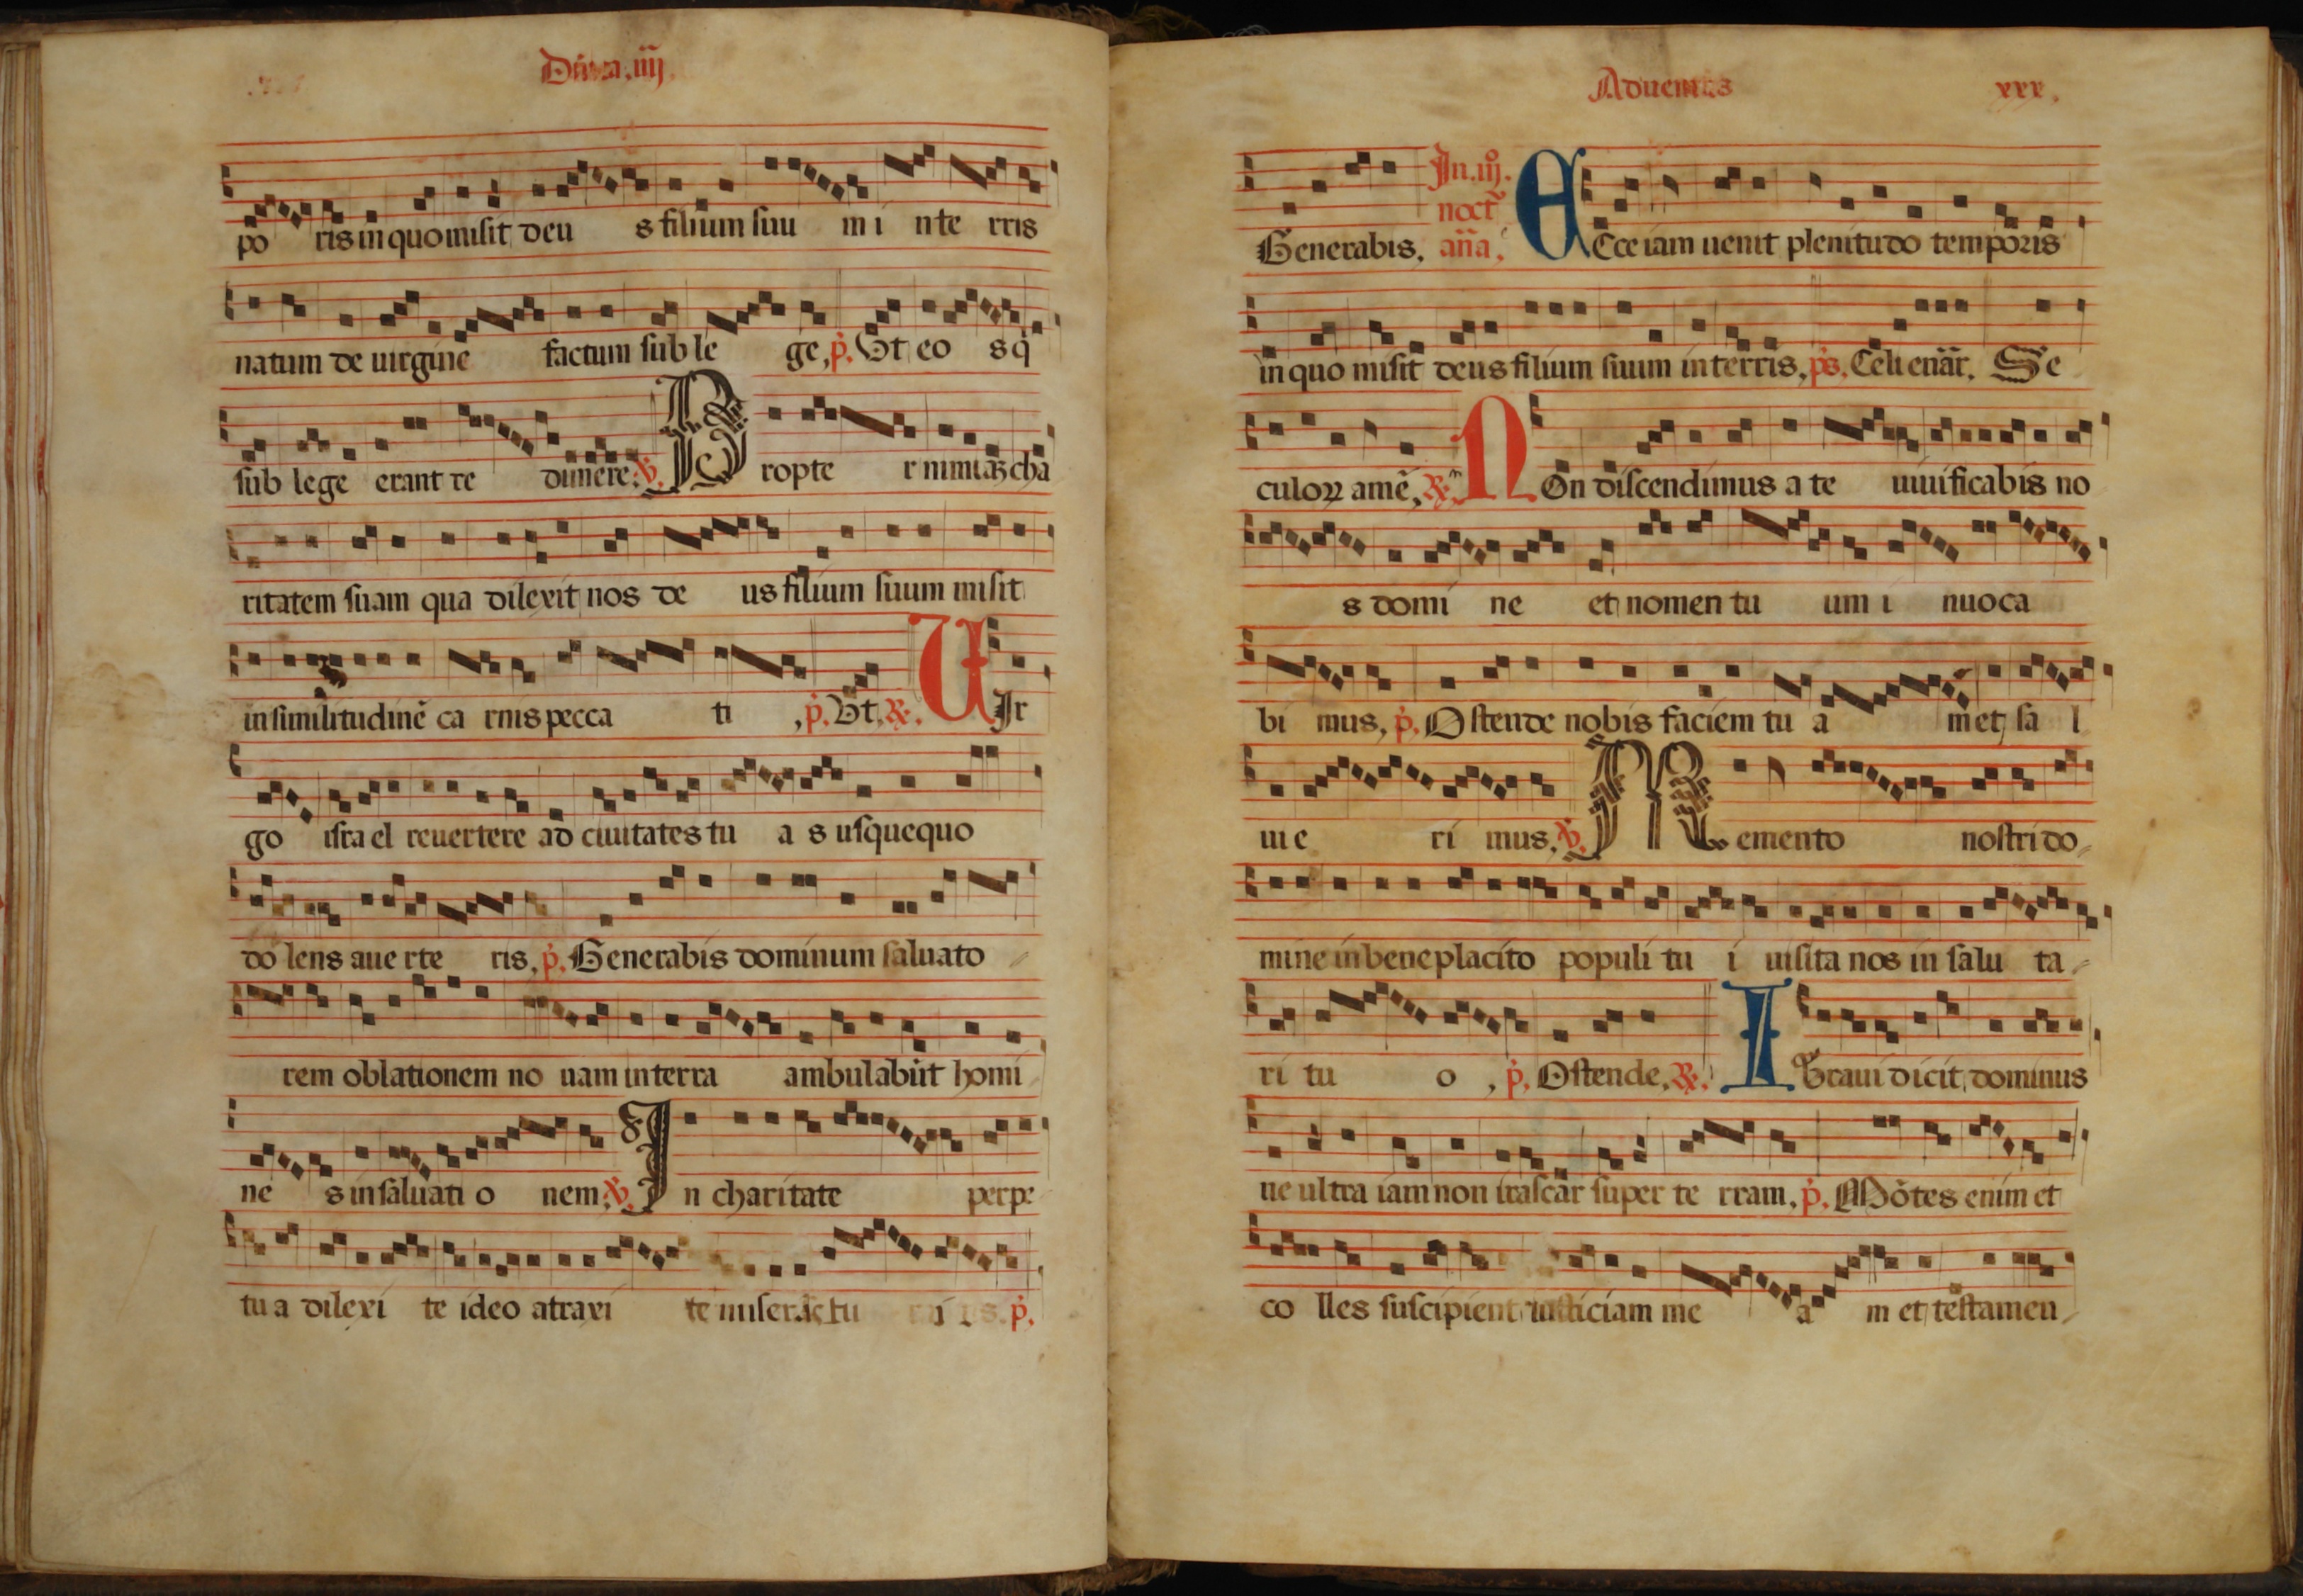 Dñica.iiij.
po ris in quo misit deu s filium suu m i n te rris
natum de uirgine factum sub le ge, p̉. Vt eo s q̇
sub lege erant re dimere: ℣. P ropte r nimiaꝫ cha
ritatem suam qua dilexit nos de us filium suum misit
in similitudinē ca rnis pecca ti , p̉. Vt, ℞. U Ir
go isra el reuertere ad ciuitates tu a s usquequo
do lens aue rte ris, p̉. Generabis dominum saluato
rem oblationem no uam in terra ambulabūt homi
ne s in saluati o nem: ℣. I n charitate perpe
tu a dilexi te ideo atraxi te miser
Aduentus xxx.
Generabis, In .iij. noct̃ aña, E Cce iam uenit plenitudo temporis
in quo misit deus filium suum in terris, p̃s. Celi enãr. Se
culoꝝ amē, ℞. N On discendimus a te uiuificabis no
s domi ne et nomen tu um i nuoca
bi mus, p̉. Ostende nobis faciem tu a m et sa l
ui e ri mus, ℣. M emento nostri do
mine in beneplacito populi tu i uisita nos in salu ta
ri tu o , p̉. Ostende, ℞. I Uraui dicit dominus
ue ultra iam non irascar̃ super te rram, p̉. Mōtes enim et
co lles suscipient iusticiam me a m et testamen